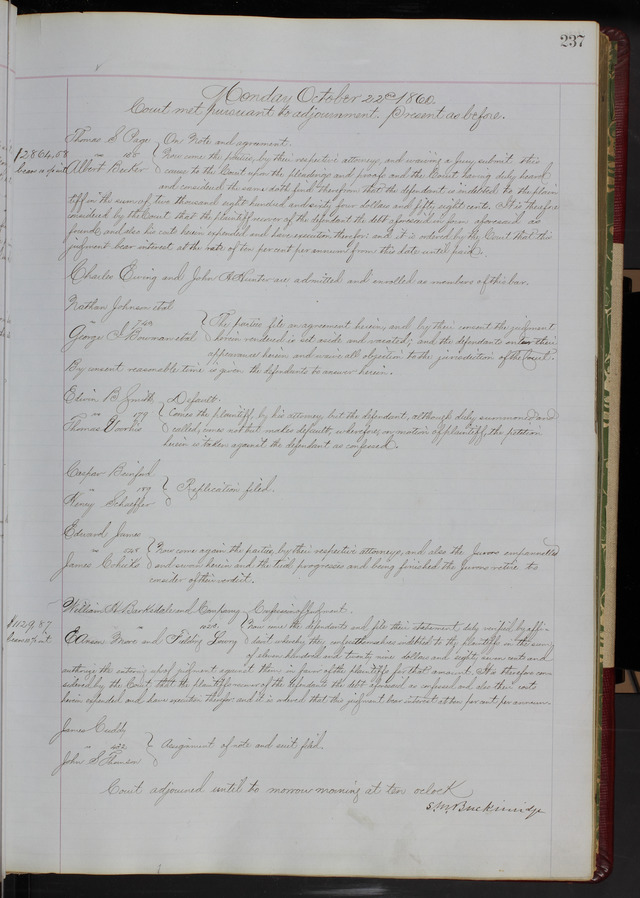 237
Monday October 22d 1860
Court met pursuant to adjournment. Present as before.
Thomas S. Page } On Note and agreement.
$2864.58 vs } Now come the parties, by their respective attorneys, and waiving a jury submit this
bears 10 pr ct int Albert Becker cause to the Court upon the pleadings and proofs and the Court having duly heard
and considered the same doth find therefrom that the defendant is indebted to the plain-
tiff in the sum of two thousand eight hundred and sixty four dollars and fifty eight cents. It is therefore
considered by the Court that the plaintiff recover of the defendant the debt aforesaid in form aforesaid as
found, and also his costs herein expended and have execution therefor and it is ordered by the Court that this
judgment bear interest at the rate of ten per cent per annum from this date until paid.
Charles Ewing and John A Hunter are admitted and enrolled as members of this bar.
Nathan Johnson et al
vs } The parties file an agreement herein, and by their consent the judgment
George I Bowman et al } herein rendered is set aside and vacated; and the defendants enter their
appearance herein and waive all objection to the jurisdiction of the Court.
By consent reasonable time is given the defendants to answer herein.
Edwin B Smith } Default.
vs 179 } Comes the plaintiff, by his attorney, but the defendant, although duly summoned and
Thomas Voorhis } called, comes not but makes default, wherefore, on motion of plaintiff, the petition
herein is taken against the defendant as confessed.
Caspar
vs } Replication filed.
Henry Schaeffer
Edward James
vs } Now come again the parties, by their respective attorneys, and also the Jurors empannelled
James } and sworn herein and the trial progresses and being finished the Jurors retire to
consider of their verdict.
William H. Barksdale and Company } Confession of Judgment.
$1129.87 vs } Now come the defendants and file their statement duly verified by affi-
bears 10 pr ct int and Fielding Lowry } davit whereby they confess themselves indebted to the plaintiffs in the sum
of eleven hundred and twenty nine dollars and eighty seven cents and
authorize the entering up of judgment against them in favor of the plaintiffs for that amount. It is therefore con-
sidered by the Court, that the plaintiffs recover of the defendants the debt aforesaid as confessed and also their costs
herein expended and have execution therefor and it is ordered that this judgment bear interest at ten per cent per annum.
James Cuddy
vs } Assignment of note and suit filed.
John S
Court adjourned until to morrow morning at ten oclock
S. M. Breckinridge